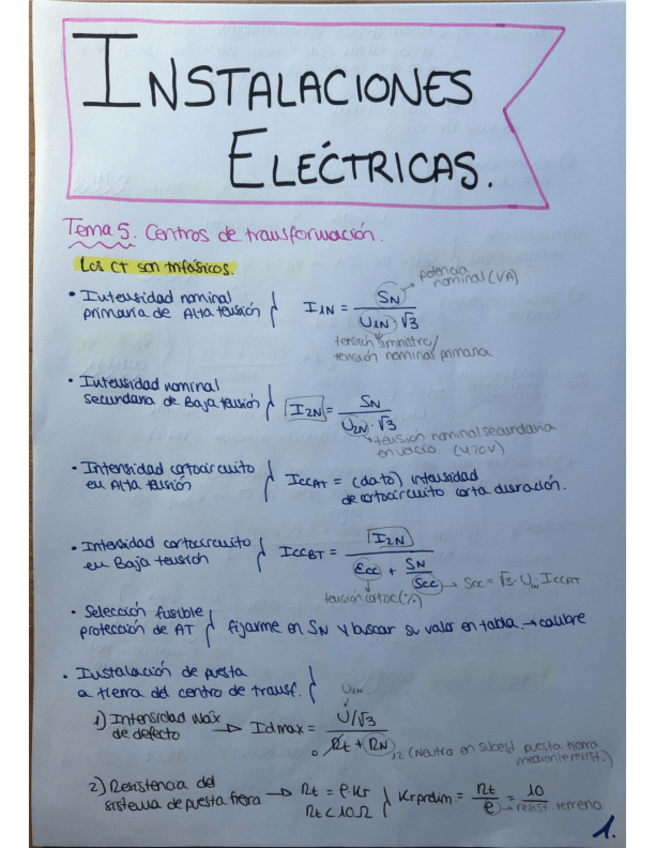 INSTALACIONES
ELÉCTRICAS.
Tema 5. Centros de transformación.
Los CT son trifásicos.
• Intensidad nominal
primaria de Alta tensión { I1N = SN / U1N·√3
potencia
nominal (VA)
tensión suministro/
tensión nominal primaria
• Intensidad nominal
secundaria de Baja tensión { I2N = SN / U2N·√3
tensión nominal secundaria
en vacío. (420V)
• Intensidad cortocircuito
en Alta tensión { ICCAT = (dato) intensidad
de cortocircuito corta duración.
• Intensidad cortocircuito
en Baja tensión { ICCBT = I2N / (Ecc + SN/Scc)
→ Scc = √3·U1N·ICCAT
tensión cortoc (%)
• Selección fusible
protección de AT { fijarme en SN y buscar su valor en tabla. → calibre
• Instalación de puesta
a tierra del centro de transf. {
1) Intensidad máx
de defecto → Idmax = U/√3 / (Rt + RN)
U1N
0
12 (Neutro en subest puesta tierra
mediante resist.)
2) Resistencia del
sistema de puesta tierra → Rt = ρ Kr
Rt < 10 Ω } Kr prelim. = Rt/ρ = 10
→ resist terreno
1.